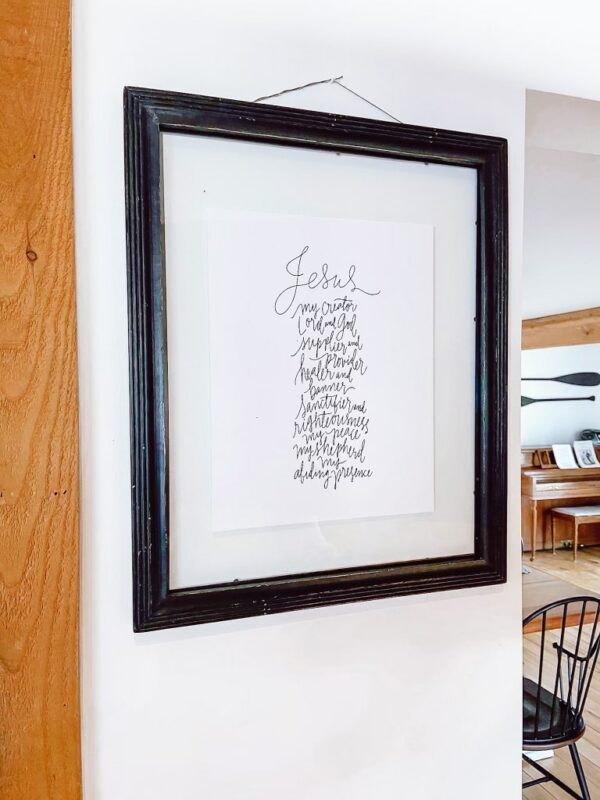 Jesus
my creator
Lord and God
supplier and
provider
healer and
banner
sanctifier and
righteousness
my peace
my shepherd
my
abiding presence